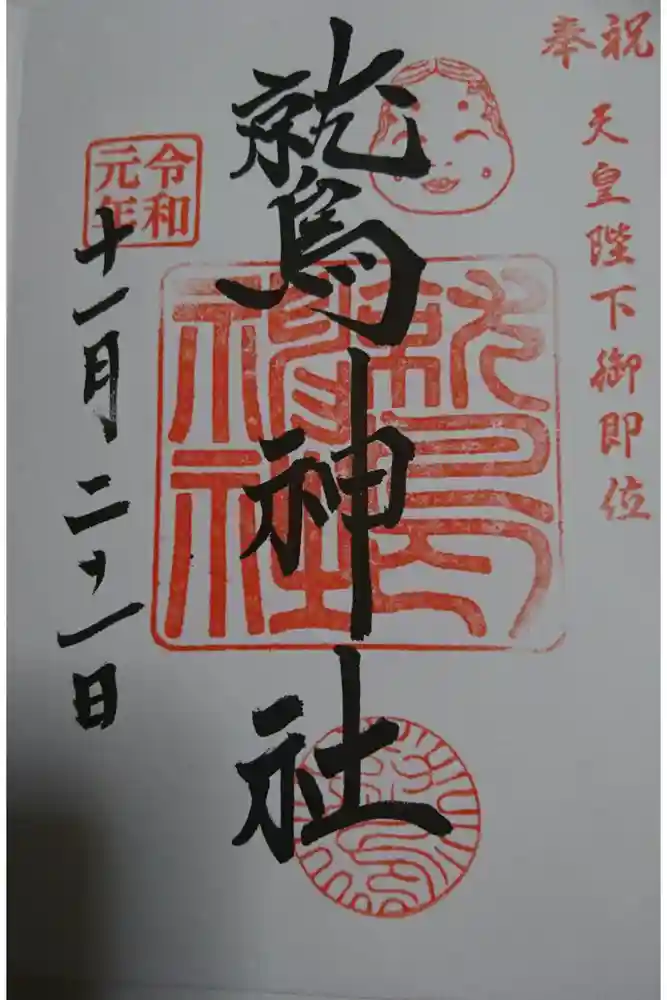 奉祝
天皇陛下御即位
鷲神社
鷲神社
令和元年
十一月二十一日